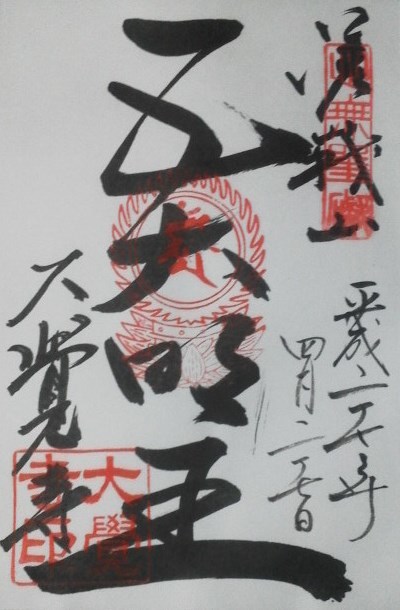 嵯峨山
平成二十七年
四月二十七日
五大明王
大覺寺
大覺寺印